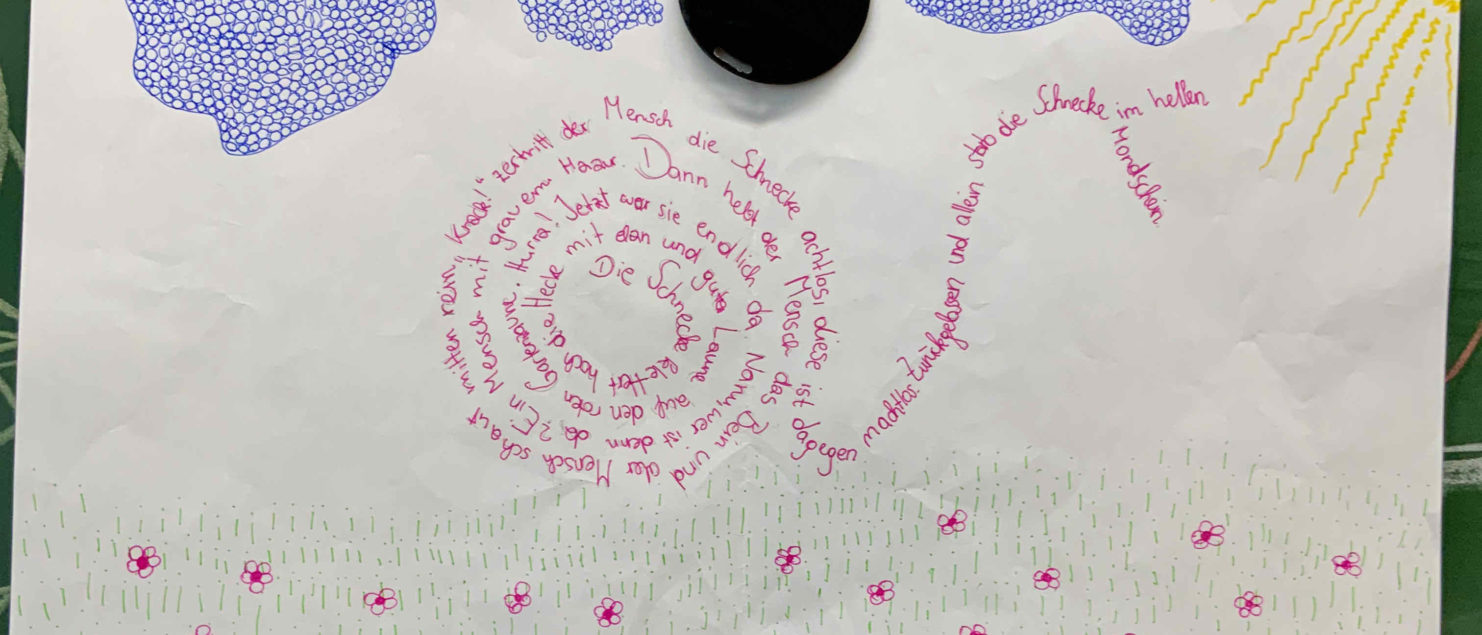 Die Schnecke klettert hoch die Hecke mit elan und guter Laune auf den roten Gartenzaune. Hurra! Jetzt war sie endlich da. Nanu, wer ist denn da? Ein Mensch mit grauem Haar. Dann hebt der Mensch das Bein und der Mensch schaut mitten rein, „Knack!“ zertritt der Mensch die Schnecke achtlos, diese ist dagegen machtlos. Zurückgelasen und allein starb die Schnecke im hellen
Mondschein.